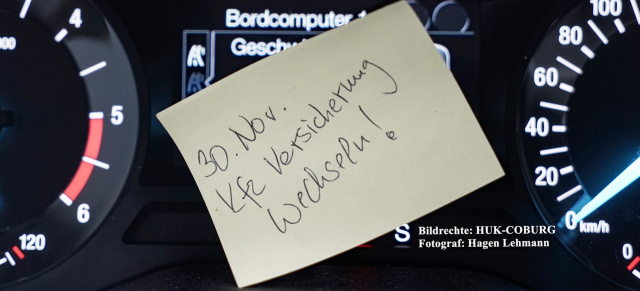 Bordcomputer 1
Geschw
30. Nov.
Kfz Versicherung
Wechseln!
4
5
6
120
100
80
60
40
20
0
km/h
0
S
Bildrechte: HUK-COBURG
Fotograf: Hagen Lehmann